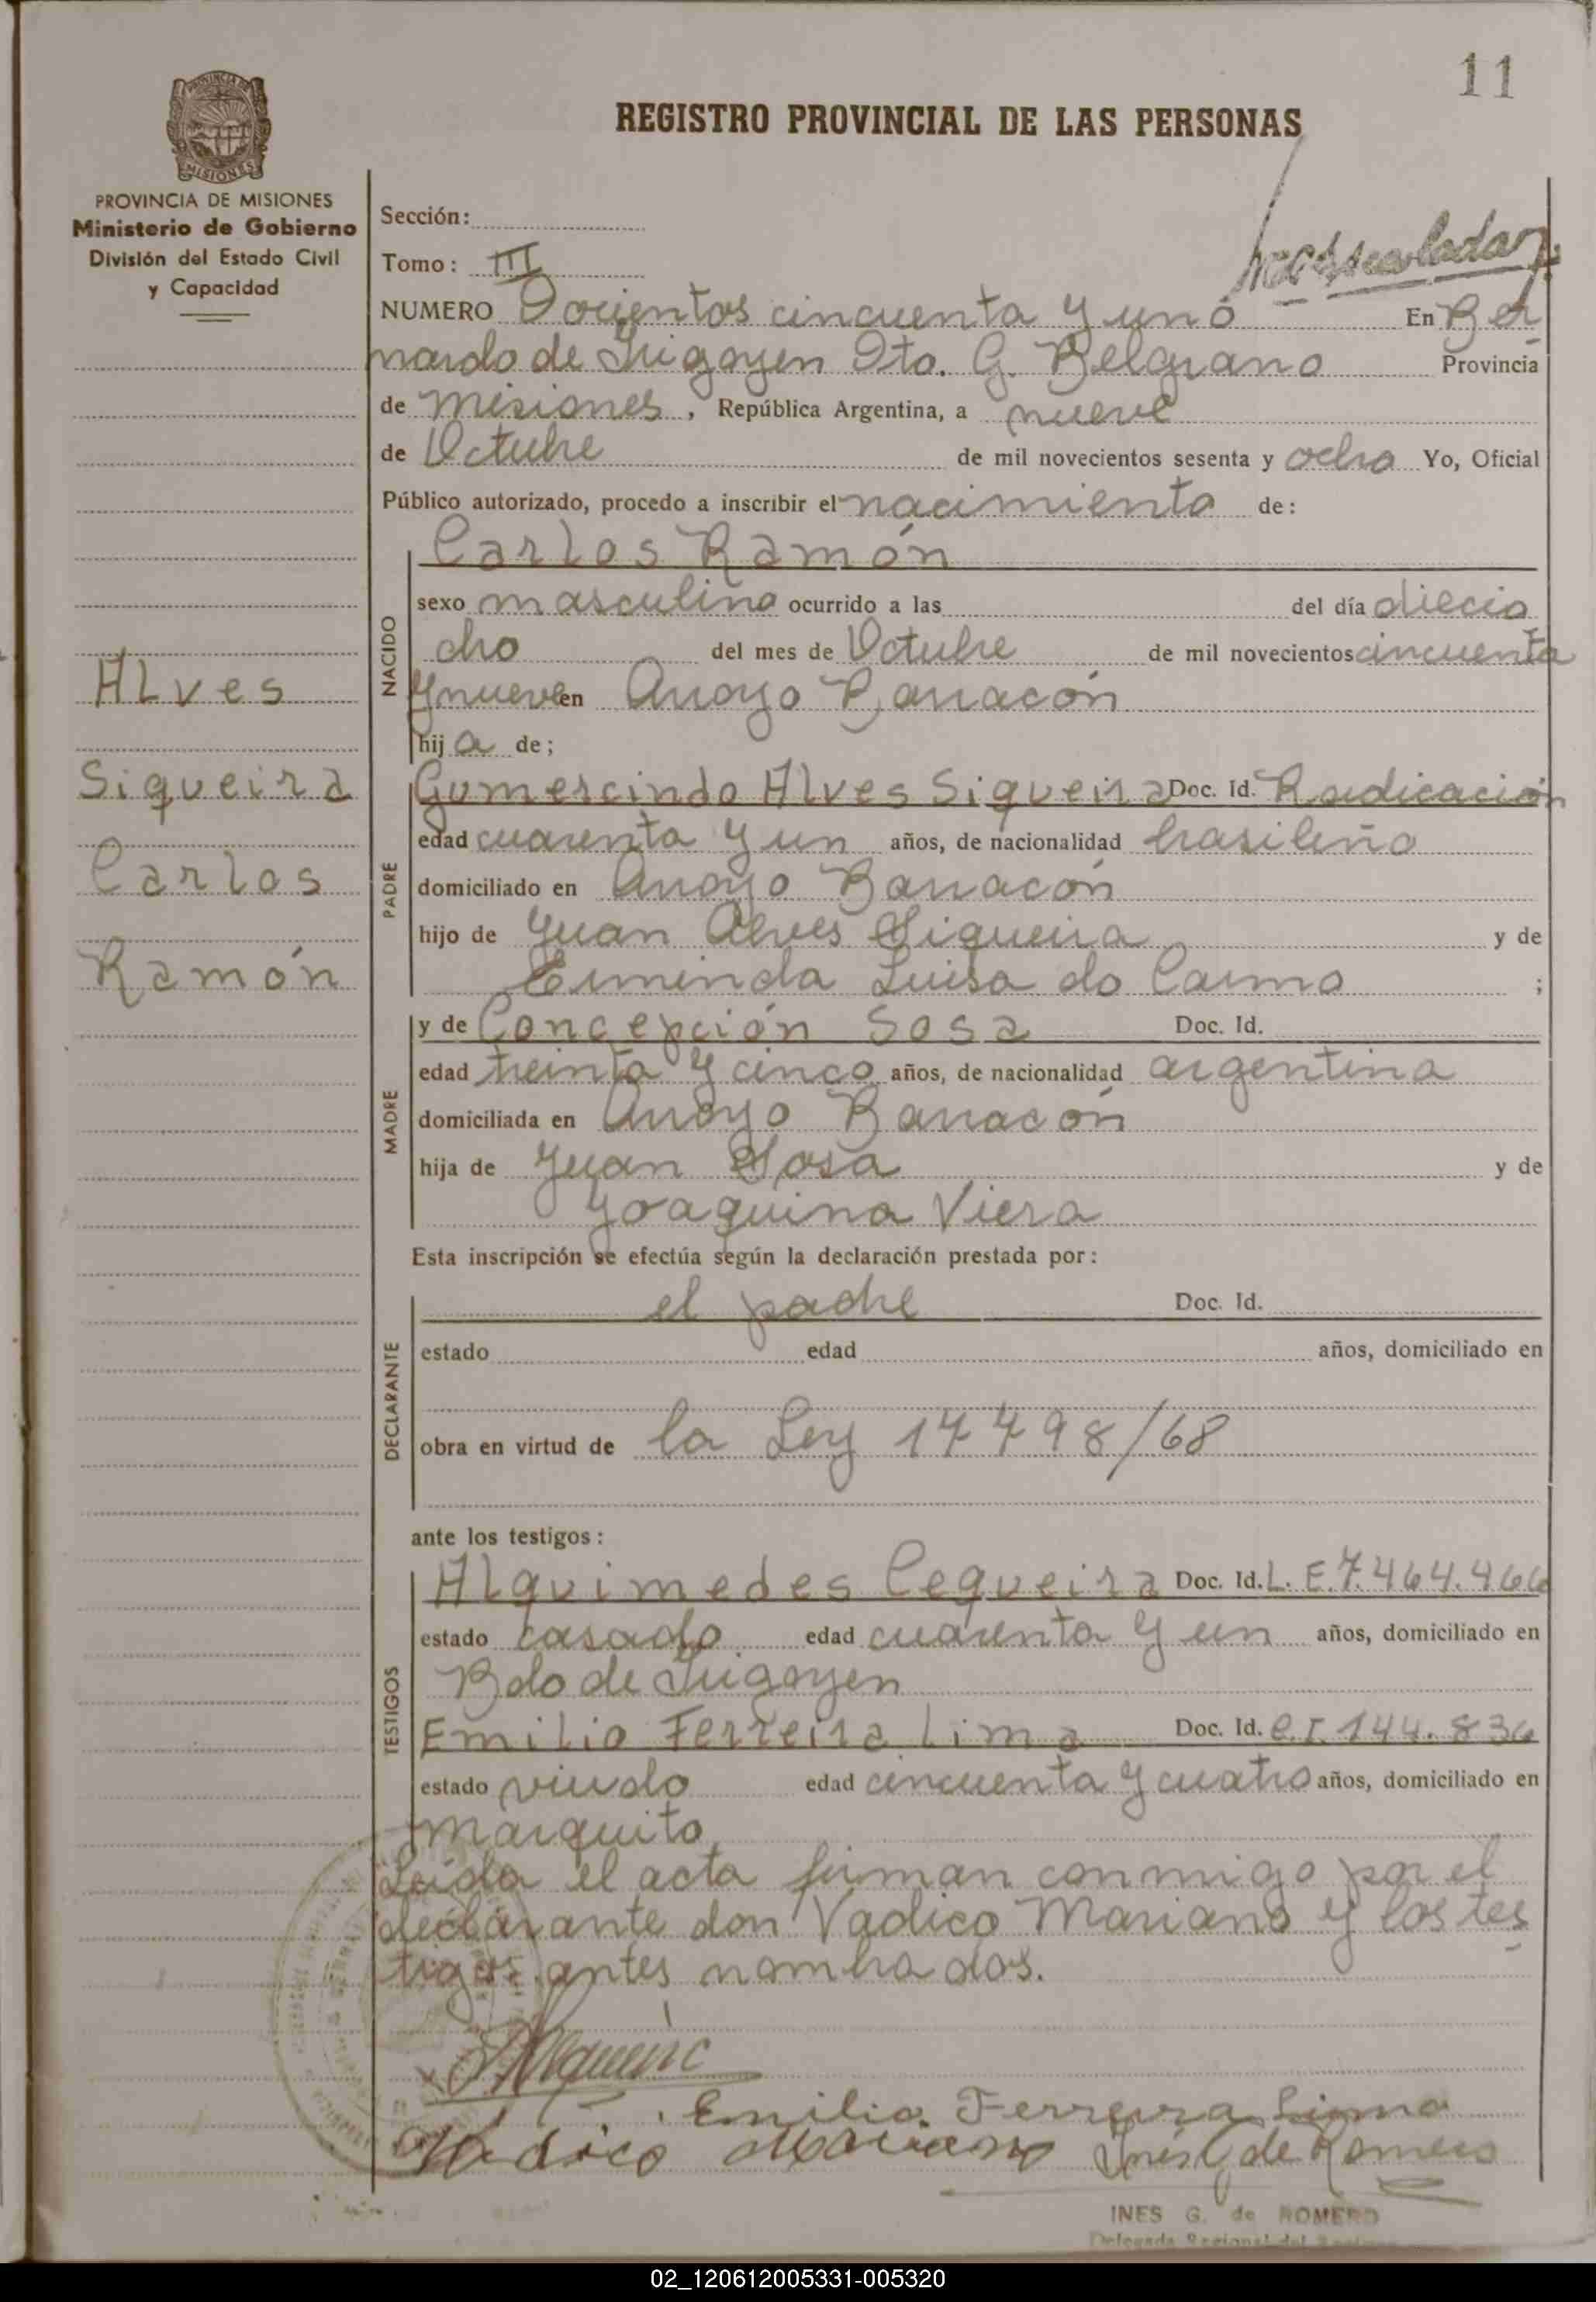 11
REGISTRO PROVINCIAL DE LAS PERSONAS
MISIONES
PROVINCIA DE MISIONES
Ministerio de Gobierno
División del Estado Civil
y Capacidad
Sección:
Tomo: III
NUMERO Docientos cincuenta y uno En Ber
nardo de Irigoyen Dto. G. Belgrano Provincia
de Misiones, República Argentina, a nueve
de Octubre de mil novecientos sesenta y ocho Yo, Oficial
Público autorizado, procedo a inscribir el nacimiento de:
Carlos Ramón
NACIDO
sexo masculino ocurrido a las del día diecio
cho del mes de Octubre de mil novecientos cincuenta
y nueve en Arroyo Barracón
hijo de;
Alves
Siqueira
Carlos
Ramón
PADRE
Gumercindo Alves Siqueira Doc. Id. Radicación
edad cuarenta y un años, de nacionalidad brasileña
domiciliado en Arroyo Barracón
hijo de Juan Alves Siqueira y de
Erminda Luisa do Carmo ;
MADRE
y de Concepción Sosa Doc. Id.
edad treinta y cinco años, de nacionalidad argentina
domiciliada en Arroyo Barracón
hija de Juan Sosa y de
Joaquina Viera
Esta inscripción se efectúa según la declaración prestada por:
DECLARANTE
el padre Doc. Id.
estado edad años, domiciliado en
obra en virtud de la Ley 17498/68
ante los testigos:
TESTIGOS
Alquimedes Cequeira Doc. Id. L. E. 7.464.466
estado casado edad cuarenta y un años, domiciliado en
Bdo de Irigoyen
Emilio Ferreira Lima Doc. Id. C.I. 144.836
estado viudo edad cincuenta y cuatro años, domiciliado en
Marquito
Leída el acta firman conmigo por el
declarante don Vadico Mariano y los tes
tigos antes nombrados.
Emilio Ferreira Lima
Vadico Mariano Inés G de Romero
INES G. de ROMERO
02_120612005331-005320